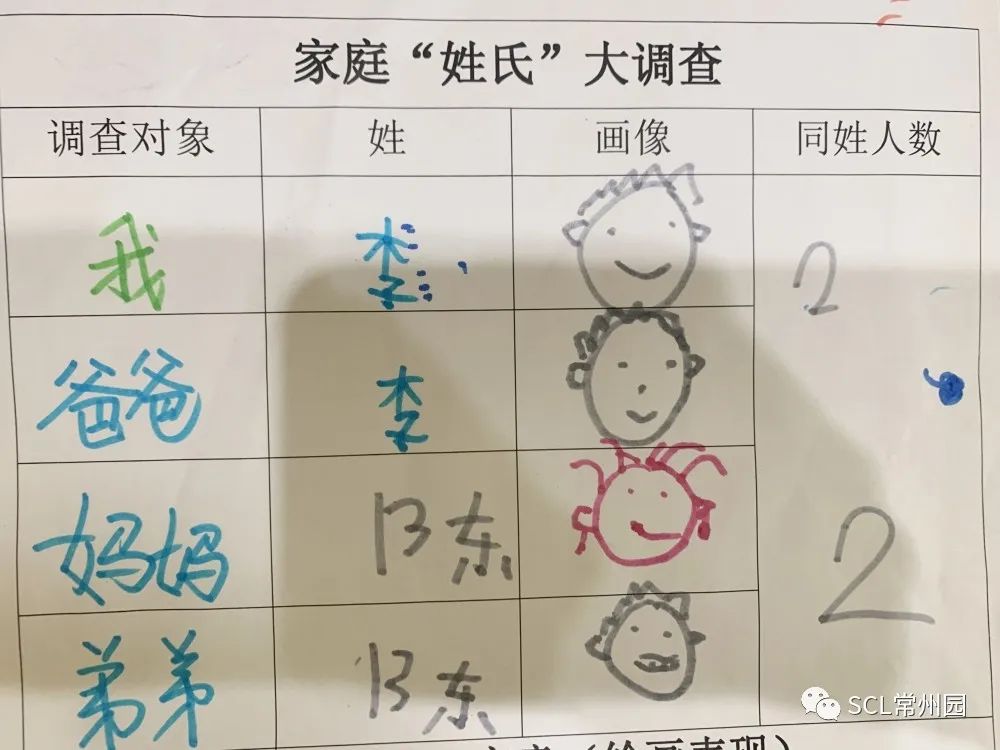 家庭“姓氏”大调查
调查对象 姓 画像 同姓人数
我 李 2
爸爸 李
妈妈 陈 2
弟弟 陈
SCL常州园